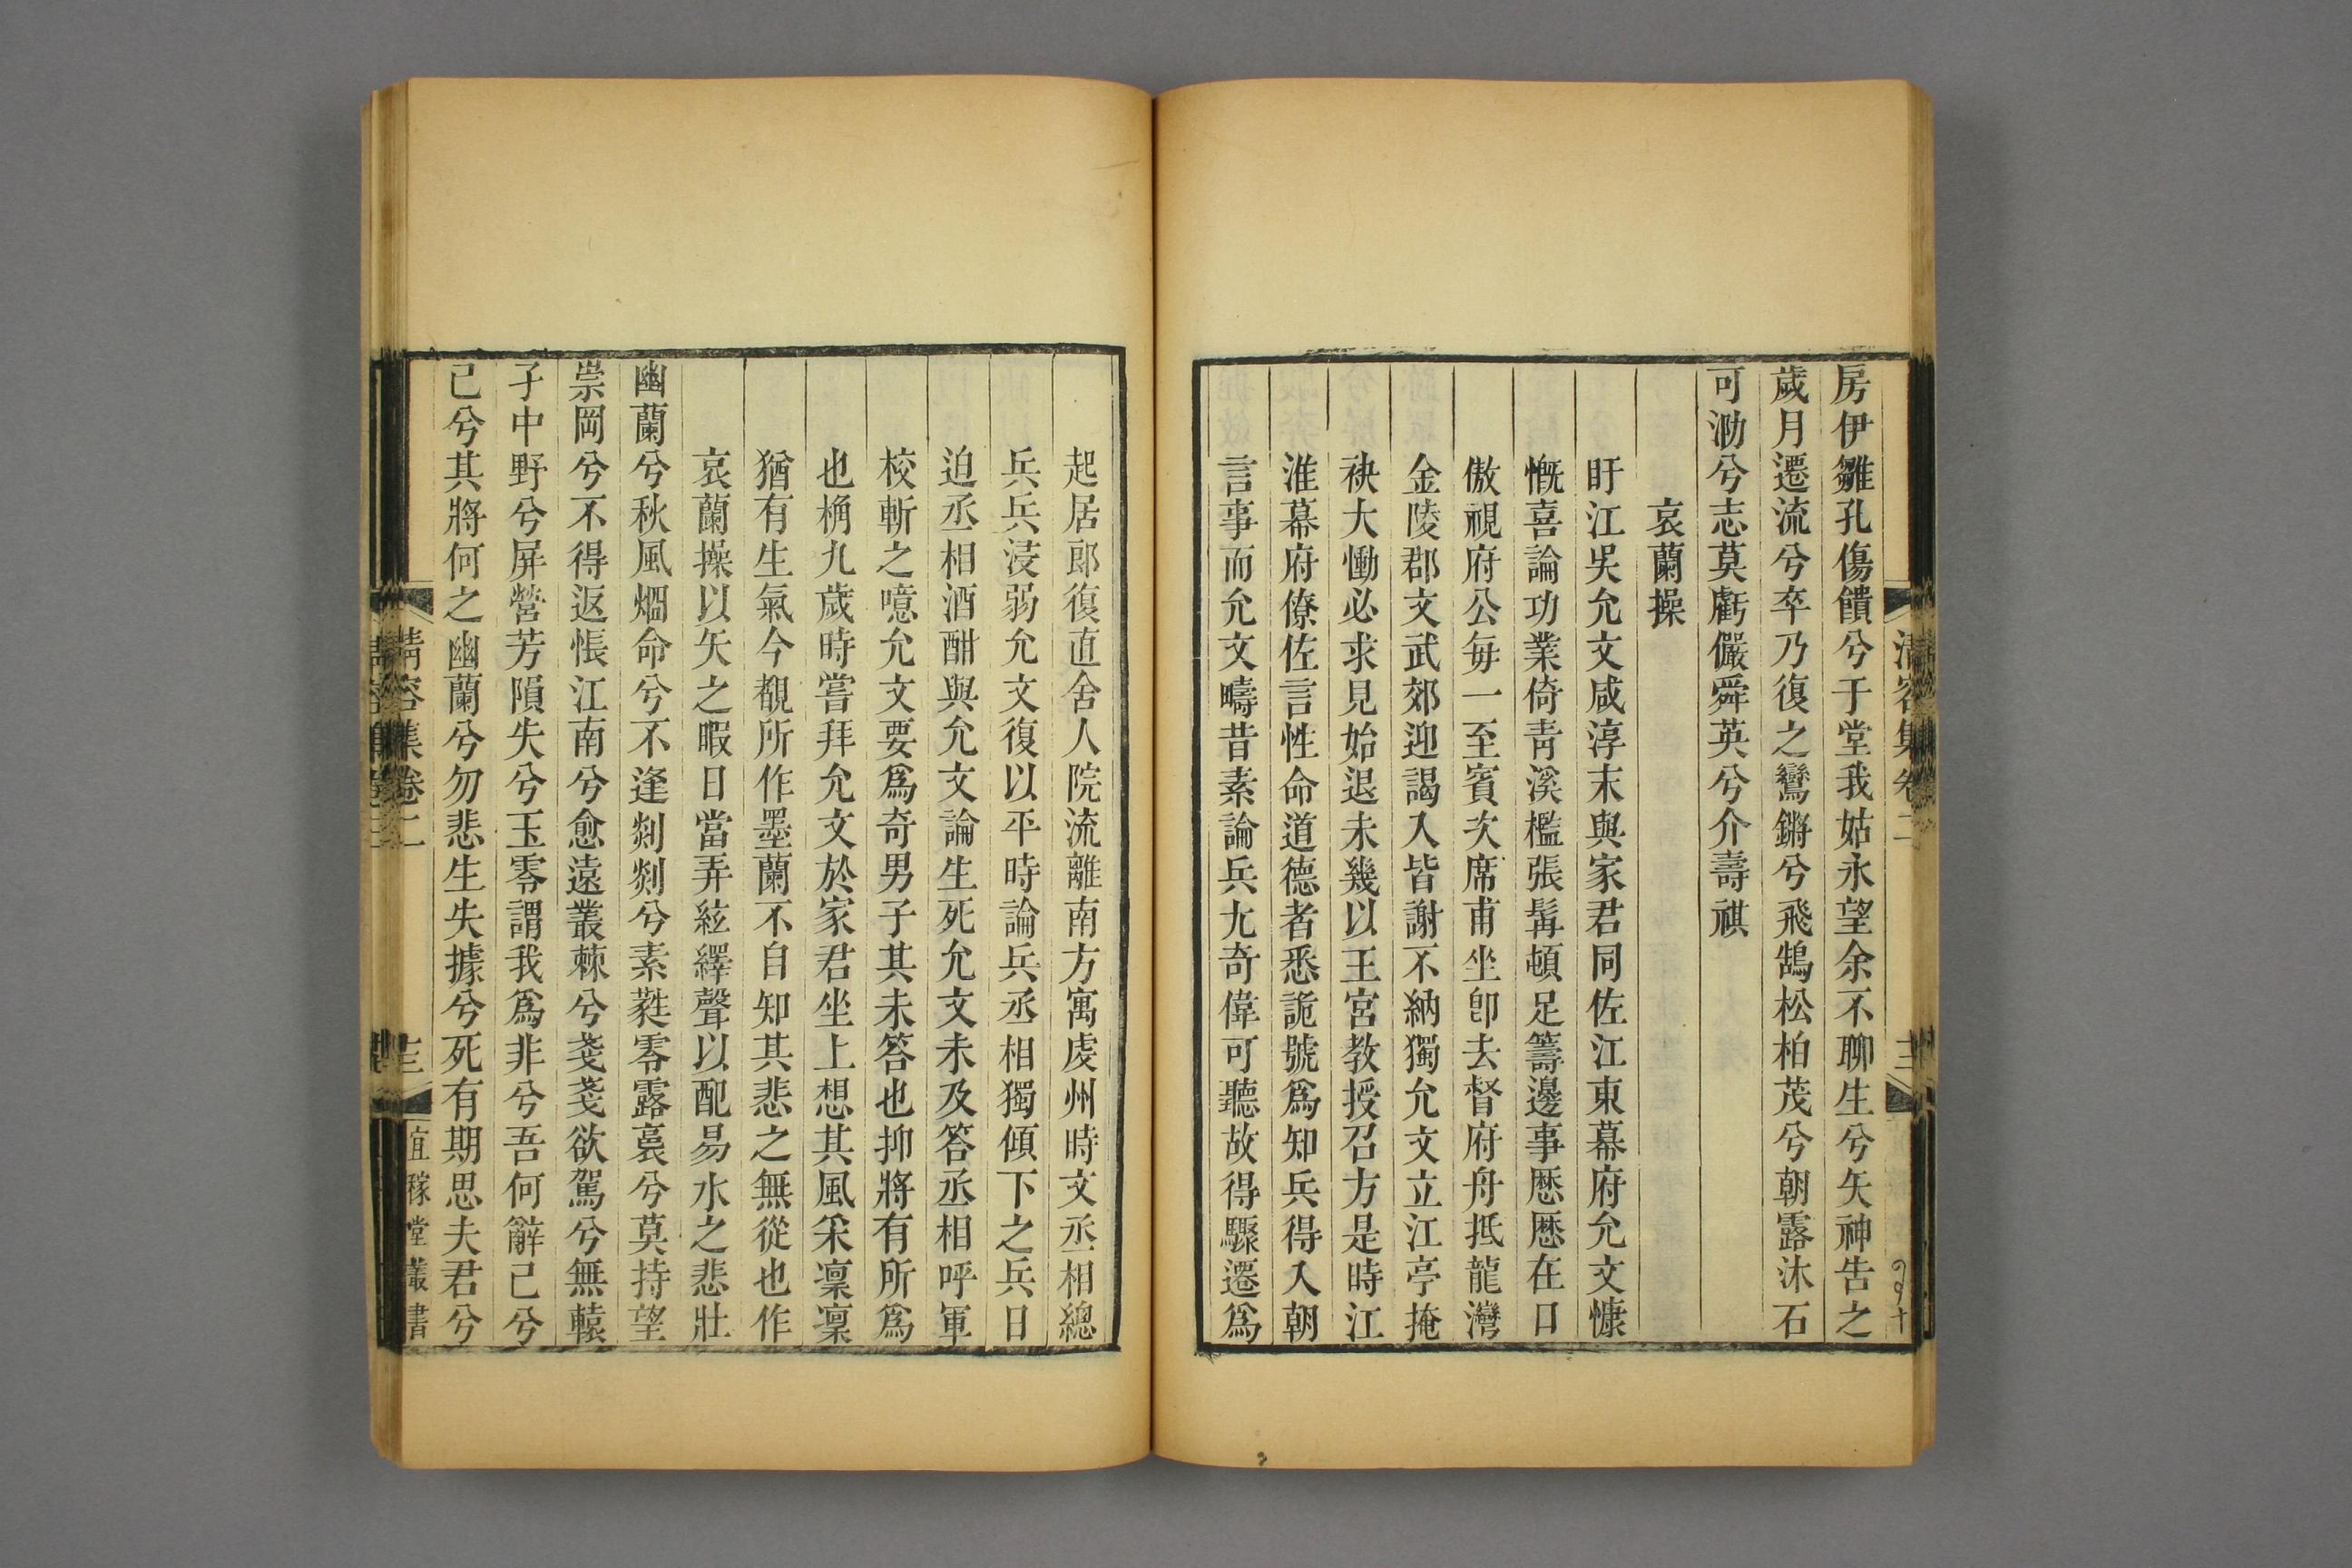 房伊雛孔傷饋兮于堂我姑永望余不聊生兮矢神吿之
歲月遷流兮卒乃復之鸞鏘兮飛鵠松柏茂兮朝露沐石
可泐兮志莫虧儼舜英兮介壽祺
哀蘭操
盱江吳允文咸淳末與家君同佐江東幕府允文慷
慨喜論功業倚靑溪檻張髯頓足籌邊事歷歷在口
傲視府公每一至賓次席甫坐卽去督府舟抵龍灣
金陵郡文武郊迎謁入皆謝不納獨允文立江亭掩
袂大慟必求見始退未幾以王宮教授召方是時江
淮幕府僚佐言性命道德者悉詭號爲知兵得入朝
言事而允文疇昔素論兵尤奇偉可聽故得驟遷爲
起居郎復直舍人院流離南方寓虔州時文丞相總
兵兵浸弱允文復以平時論兵丞相獨傾下之兵日
迫丞相酒酣與允文論生死允文未及答丞相呼軍
校斬之噫允文要爲奇男子其未答也抑將有所爲
也桷九歲時嘗拜允文於家君坐上想其風采凜凜
猶有生氣今覩所作墨蘭不自知其悲之無從也作
哀蘭操以矢之暇日當弄絃繹聲以配易水之悲壯
幽蘭兮秋風烱命兮不逢剡剡兮素蕤零露裛兮莫持望
崇岡兮不得返悵江南兮愈遠叢棘兮戔戔欲駕兮無轅
孑中野兮屏營芳隕失兮玉零謂我爲非兮吾何辭己兮
己兮其將何之幽蘭兮勿悲生失據兮死有期思夫君兮
淸容集卷二
宜稼堂叢書